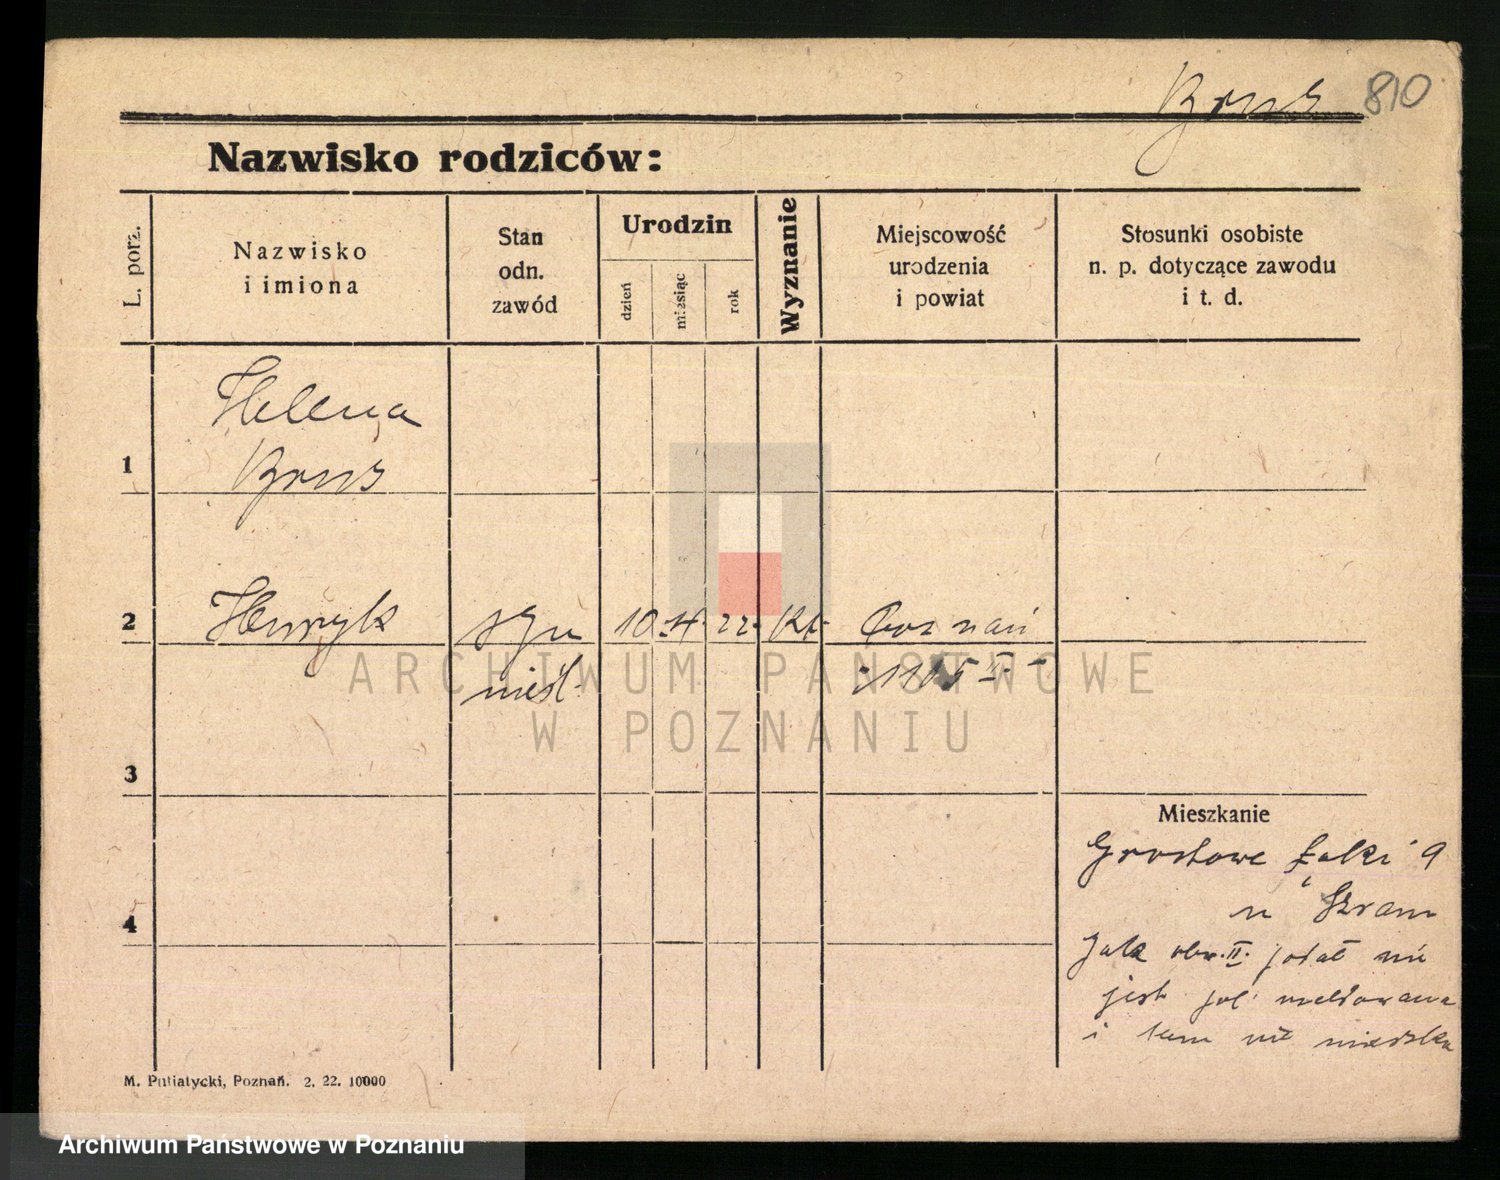 Brus 810
Nazwisko rodziców:
L. porz.
Nazwisko
i imiona
Stan
odn.
zawód
Urodzin
dzień
miesiąc
rok
Wyznanie
Miejscowość
urodzenia
i powiat
Stosunki osobiste
n. p. dotyczące zawodu
i t. d.
Helena
1 Brus
2 Henryk syn 10 22. kt. Poznań
nieśl.
ARCHIWUM PAŃSTWOWE
W POZNANIU
3
Mieszkanie
Grostowe Łąki 9
4 u Szram
Jak obw. II. podał nie
jest pol. meldowana
i tam nie mieszka
M. Putiatycki, Poznań. 2. 22. 10000
Archiwum Państwowe w Poznaniu